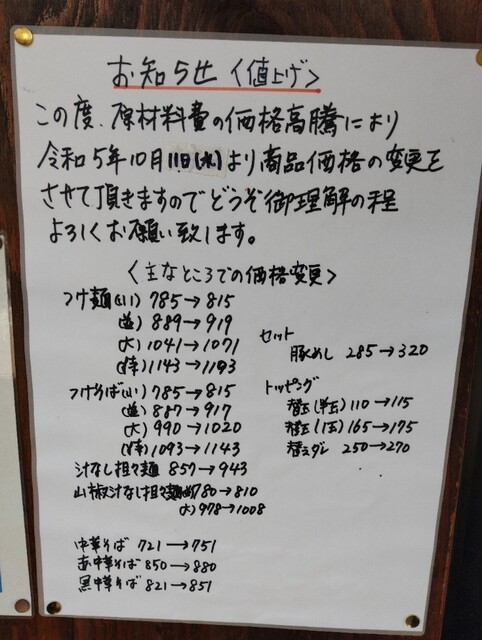 お知らせ〈値上げ〉
この度、原材料費の価格高騰により
令和5年10月11日(水)より商品価格の変更を
させて頂きますのでどうぞ御理解の程
よろしくお願い致します。
〈主なところでの価格変更〉
つけ麺(小) 785→815
(並) 889→919
(大) 1041→1071
(特) 1143→1193
つけそば(小) 785→815
(並) 887→917
(大) 990→1020
(特) 1093→1143
汁なし担々麺 857→943
山椒汁なし担々麺 780→810
(大) 978→1008
中華そば 721→751
赤中華そば 850→880
黒中華そば 821→851
セット
豚めし 285→320
トッピング
替玉(半玉) 110→115
替玉(1玉) 165→175
替えダレ 250→270